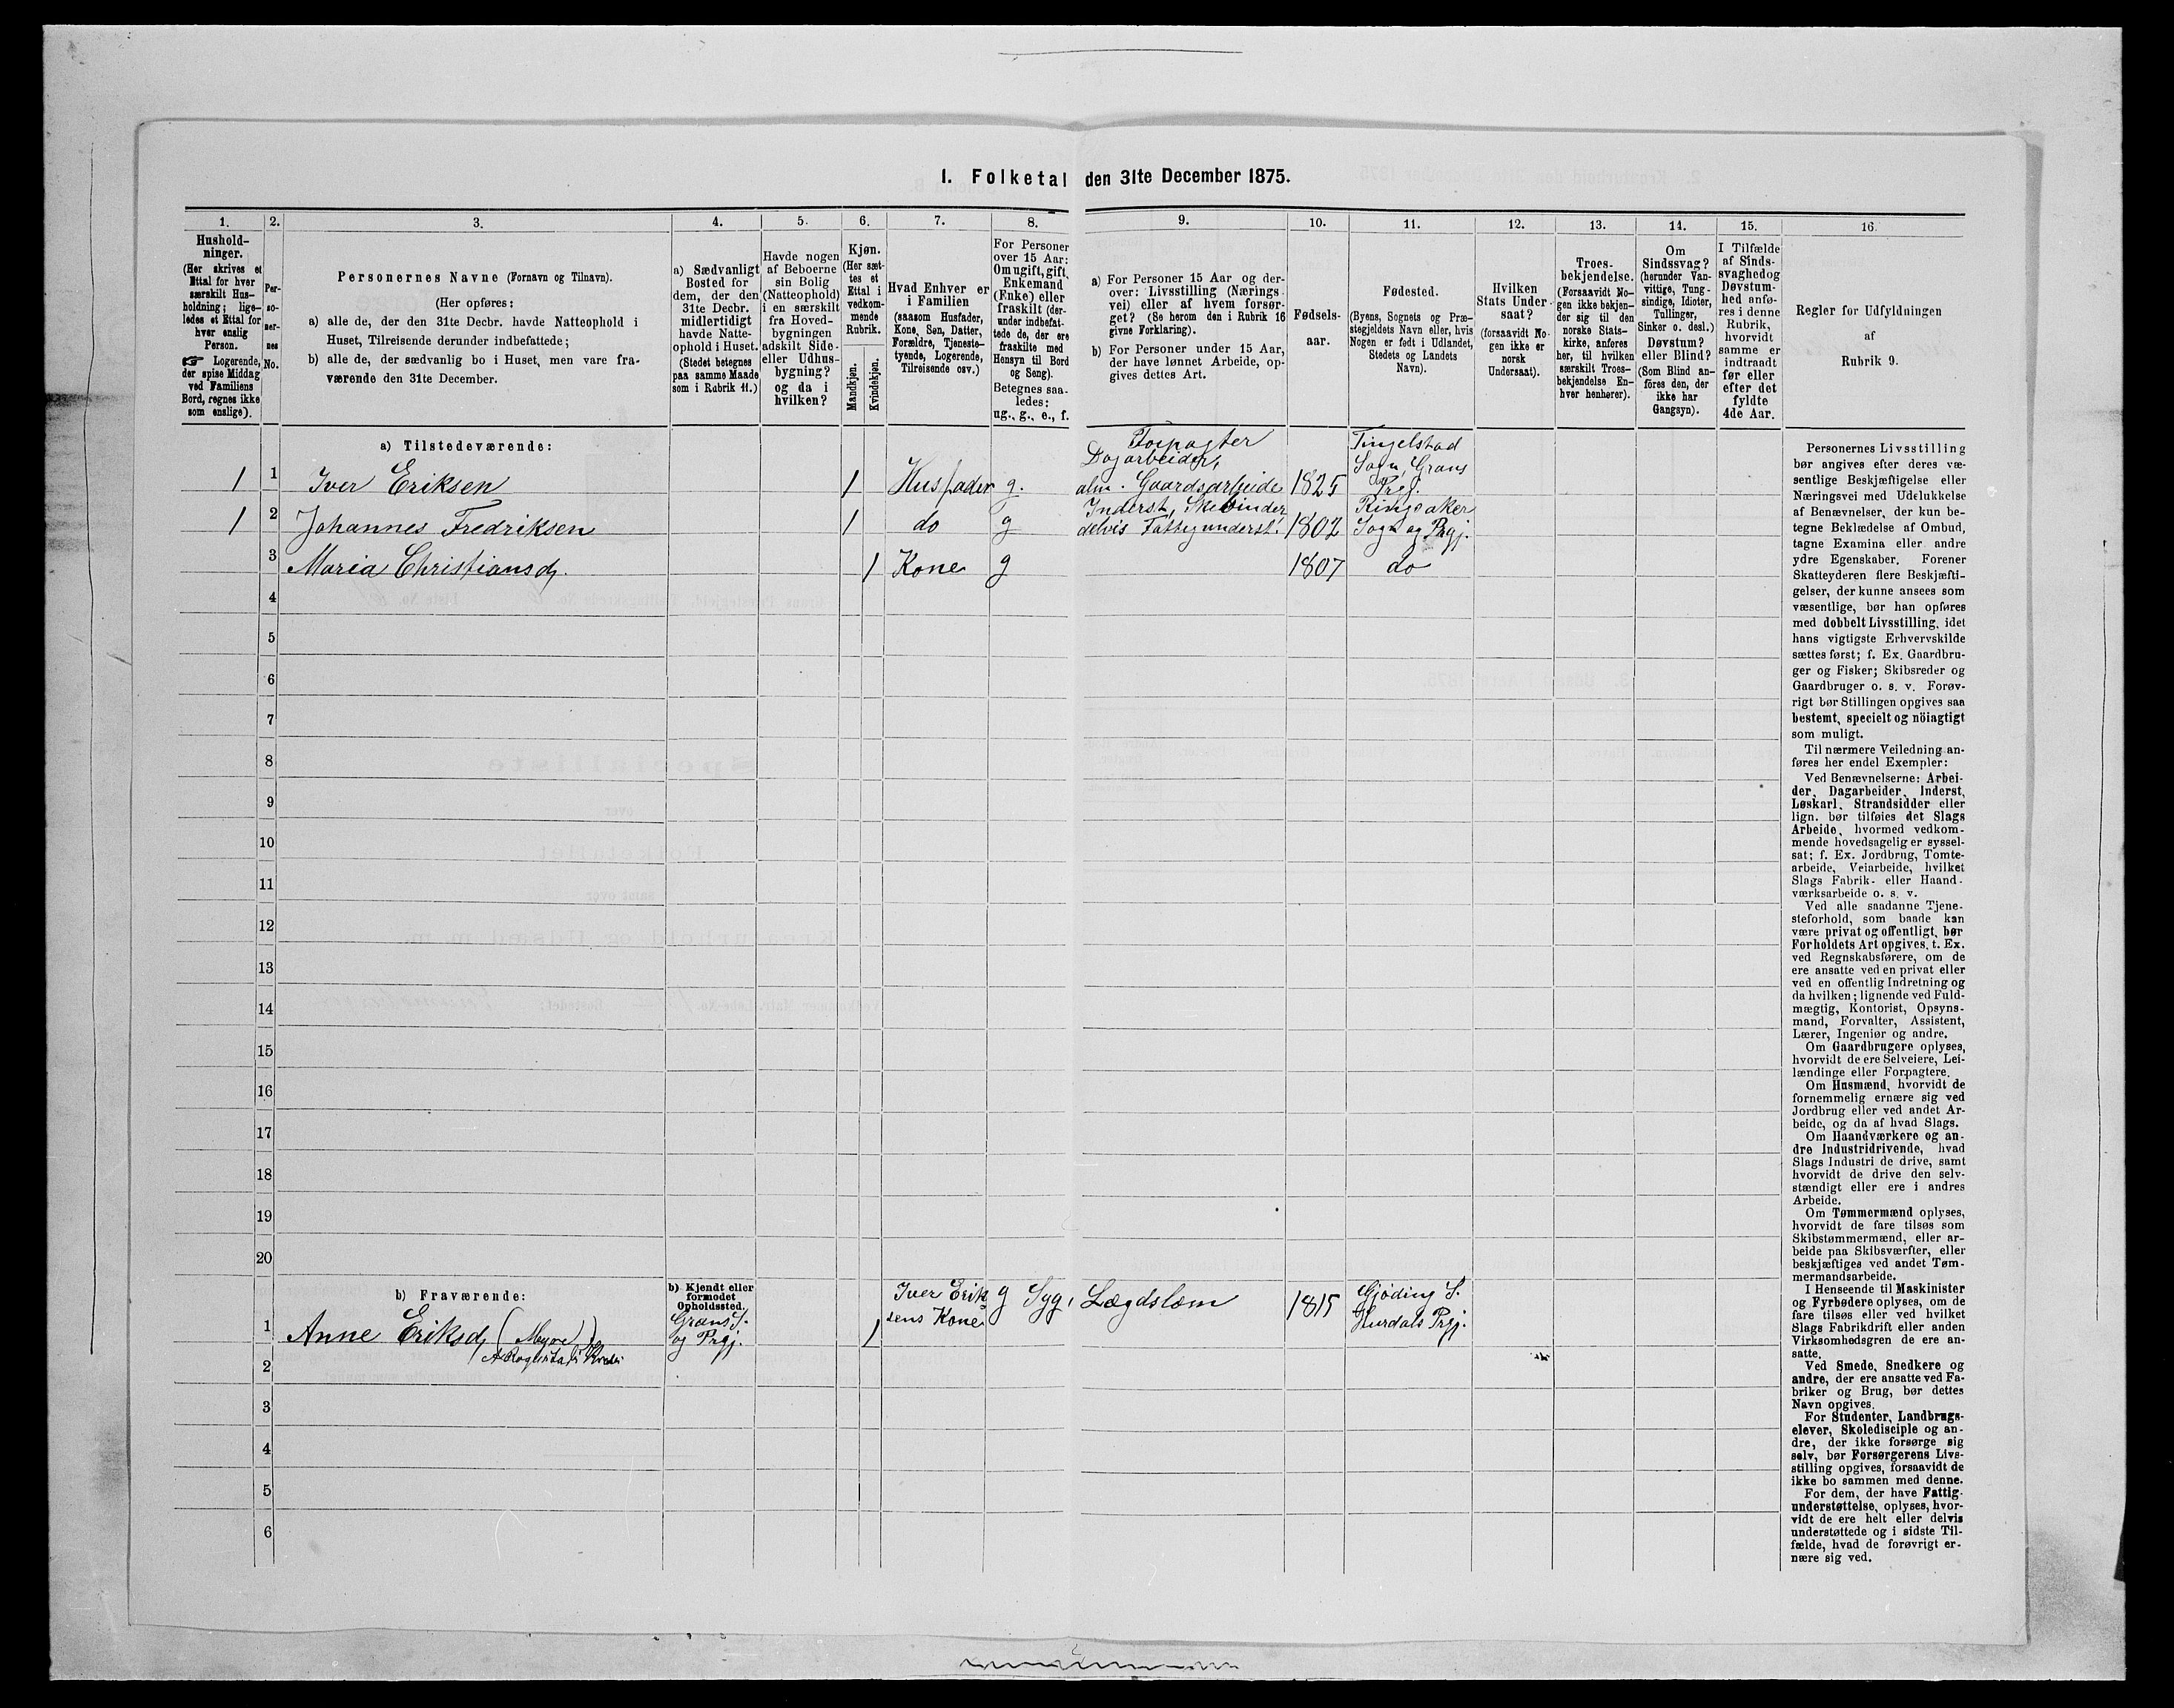 I. Folketal den 31te December 1875.
1.
Hushold-
ninger.
(Her skrives et
Ettal for hver
særskilt Hus-
holdning; lige-
ledes et Ettal for
hver enslig
Person.
☞ Logerende,
der spise Middag
ved Familiens
Bord, regnes ikke
som enslige).
2.
Per-
so-
ner-
nes
No.
3.
Personernes Navne (Fornavn og Tilnavn).
(Her opføres:
a) alle de, der den 31te Decbr. havde Natteophold i
Huset, Tilreisende derunder indbefattede;
b) alle de, der sædvanlig bo i Huset, men vare fra-
værende den 31te December.
4.
a) Sædvanligt
Bosted for
dem, der den
31te Decbr.
midlertidigt
havde Natte-
ophold i Huset.
(Stedet betegnes
paa samme Maade
som i Rubrik 11.)
5.
Havde nogen
af Beboerne
sin Bolig
(Natteophold)
i en særskilt
fra Hoved-
bygningen
adskilt Side-
eller Udhus-
bygning?
og da i
hvilken?
6.
Kjøn.
(Her sæt-
tes et
Ettal i
vedkom-
mende
Rubrik.
Mandkjøn.
Kvindekjøn.
7.
Hvad Enhver er
i Familien
(saasom Husfader,
Kone, Søn, Datter,
Forældre, Tjeneste-
tyende, Logerende,
Tilreisende osv.)
8.
For Personer
over 15 Aar:
Om ugift, gift,
Enkemand
(Enke) eller
fraskilt (der-
under indbefat-
tede de, der ere
fraskilte med
Hensyn til Bord
og Seng).
Betegnes saa-
ledes:
ug., g., e., f.
9.
a) For Personer 15 Aar og der-
over: Livsstilling (Nærings-
vei) eller af hvem forsør-
get? (Se herom den i Rubrik 16
givne Forklaring).
b) For Personer under 15 Aar,
der have lønnet Arbeide, op-
gives dettes Art.
10.
Fødsels-
aar.
11.
Fødested.
(Byens, Sognets og Præ-
stegjeldets Navn eller, hvis
Nogen er født i Udlandet,
Stedets og Landets
Navn).
12.
Hvilken
Stats Under-
saat?
(forsaavidt No-
gen ikke er
norsk
Undersaat).
13.
Troes-
bekjendelse.
(Forsaavidt No-
gen ikke bekjen-
der sig til den
norske Stats-
kirke, anføres
her, til hvilken
særskilt Troes-
bekjendelse En-
hver henhører).
14.
Om
Sindssvag?
(herunder Van-
vittige, Tung-
sindige, Idioter,
Tullinger,
Sinker o. desl.)
Døvstum?
eller Blind?
(Som Blind an-
føres den, der
ikke har
Gangsyn).
15.
I Tilfælde
af Sinds-
svaghed og
Døvstum-
hed anfø-
res i denne
Rubrik,
hvorvidt
samme er
indtraadt
før eller
efter det
fyldte
4de Aar.
16.
Regler for Udfyldningen
af
Rubrik 9.
a) Tilstedeværende:
1 1 Iver Eriksen 1 Husfader g. Forpagter
Dagarbeider,
alm. Gaardsarbeide 1825 Tingelstad
Sogn, Grans
Prgj.
1 2 Johannes Fredriksen 1 do g Inderst, Skebinder
delvis Fattigunderst. 1802 Ringsaker
Sogn og Prgj.
3 Maria Christiansd. 1 Kone g 1807 do
4
5
6
7
8
9
10
11
12
13
14
15
16
17
18
19
20
b) Fraværende:
b) Kjendt eller
formodet
Opholdssted.
1 Anne Eriksd.
Grans S.
og Prgj. 1 Iver Erik-
sens Kone g Syg, Lægdslem 1815 Gjøding S.
Hurdals Prgj.
2
3
4
5
6
Personernes Livsstilling
bør angives efter deres væ-
sentlige Beskjæftigelse eller
Næringsvei med Udelukkelse
af Benævnelser, der kun be-
tegne Beklædelse af Ombud,
tagne Examina eller andre
ydre Egenskaber. Forener
Skatteyderen flere Beskjæfti-
gelser, der kunne ansees som
væsentlige, bør han opføres
med dobbelt Livsstilling, idet
hans vigtigste Erhvervskilde
sættes først; f. Ex. Gaardbru-
ger og Fisker; Skibsreder og
Gaardbruger o. s. v. Forøv-
rigt bør Stillingen opgives saa
bestemt, specielt og nöiagtigt
som muligt.
Til nærmere Veiledning an-
føres her endel Exempler:
Ved Benævnelserne: Arbei-
der, Dagarbeider, Inderst,
Løskarl, Strandsidder eller
lign. bør tilføies det Slags
Arbeide, hvormed vedkom-
mende hovedsagelig er syssel-
sat; f. Ex. Jordbrug, Tomte-
arbeide, Veiarbeide, hvilket
Slags Fabrik- eller Haand-
værksarbeide o. s. v.
Ved alle saadanne Tjene-
steforhold, som baade kan
være privat og offentligt, bør
Forholdets Art opgives, t. Ex.
ved Regnskabsførere, om de
ere ansatte ved en privat eller
ved en offentlig Indretning og
da hvilken; lignende ved Fuld-
mægtig, Kontorist, Opsyns-
mand, Forvalter, Assistent,
Lærer, Ingeniør og andre.
Om Gaardbrugere oplyses,
hvorvidt de ere Selveiere, Lei-
lændinge eller Forpagtere.
Om Husmænd, hvorvidt de
fornemmelig ernære sig ved
Jordbrug eller ved andet Ar-
beide, og da af hvad Slags.
Om Haandværkere og an-
dre Industridrivende, hvad
Slags Industri de drive, samt
hvorvidt de drive den selv-
stændigt eller ere i andres
Arbeide.
Om Tømmermænd oplyses,
hvorvidt de fare tilsøs som
Skibstømmermænd, eller ar-
beide paa Skibsværfter, eller
beskjæftiges ved andet Tøm-
mermandsarbeide.
I Henseende til Maskinister
og Fyrbødere oplyses, om de
fare tilsøs eller ved hvilket
Slags Fabrikdrift eller anden
Virksomhedsgren de ere an-
satte.
Ved Smede, Snedkere og
andre, der ere ansatte ved Fa-
briker og Brug, bør dettes
Navn opgives.
For Studenter, Landbrugs-
elever, Skoledisciple og an-
dre, der ikke forsørge sig
selv, bør Forsørgerens Livs-
stilling opgives, forsaavidt de
ikke bo sammen med denne.
For dem, der have Fattig-
understøttelse, oplyses, hvor-
vidt de ere helt eller delvis
understøttede og i sidste Til-
fælde, hvad de forøvrigt er-
nære sig ved.